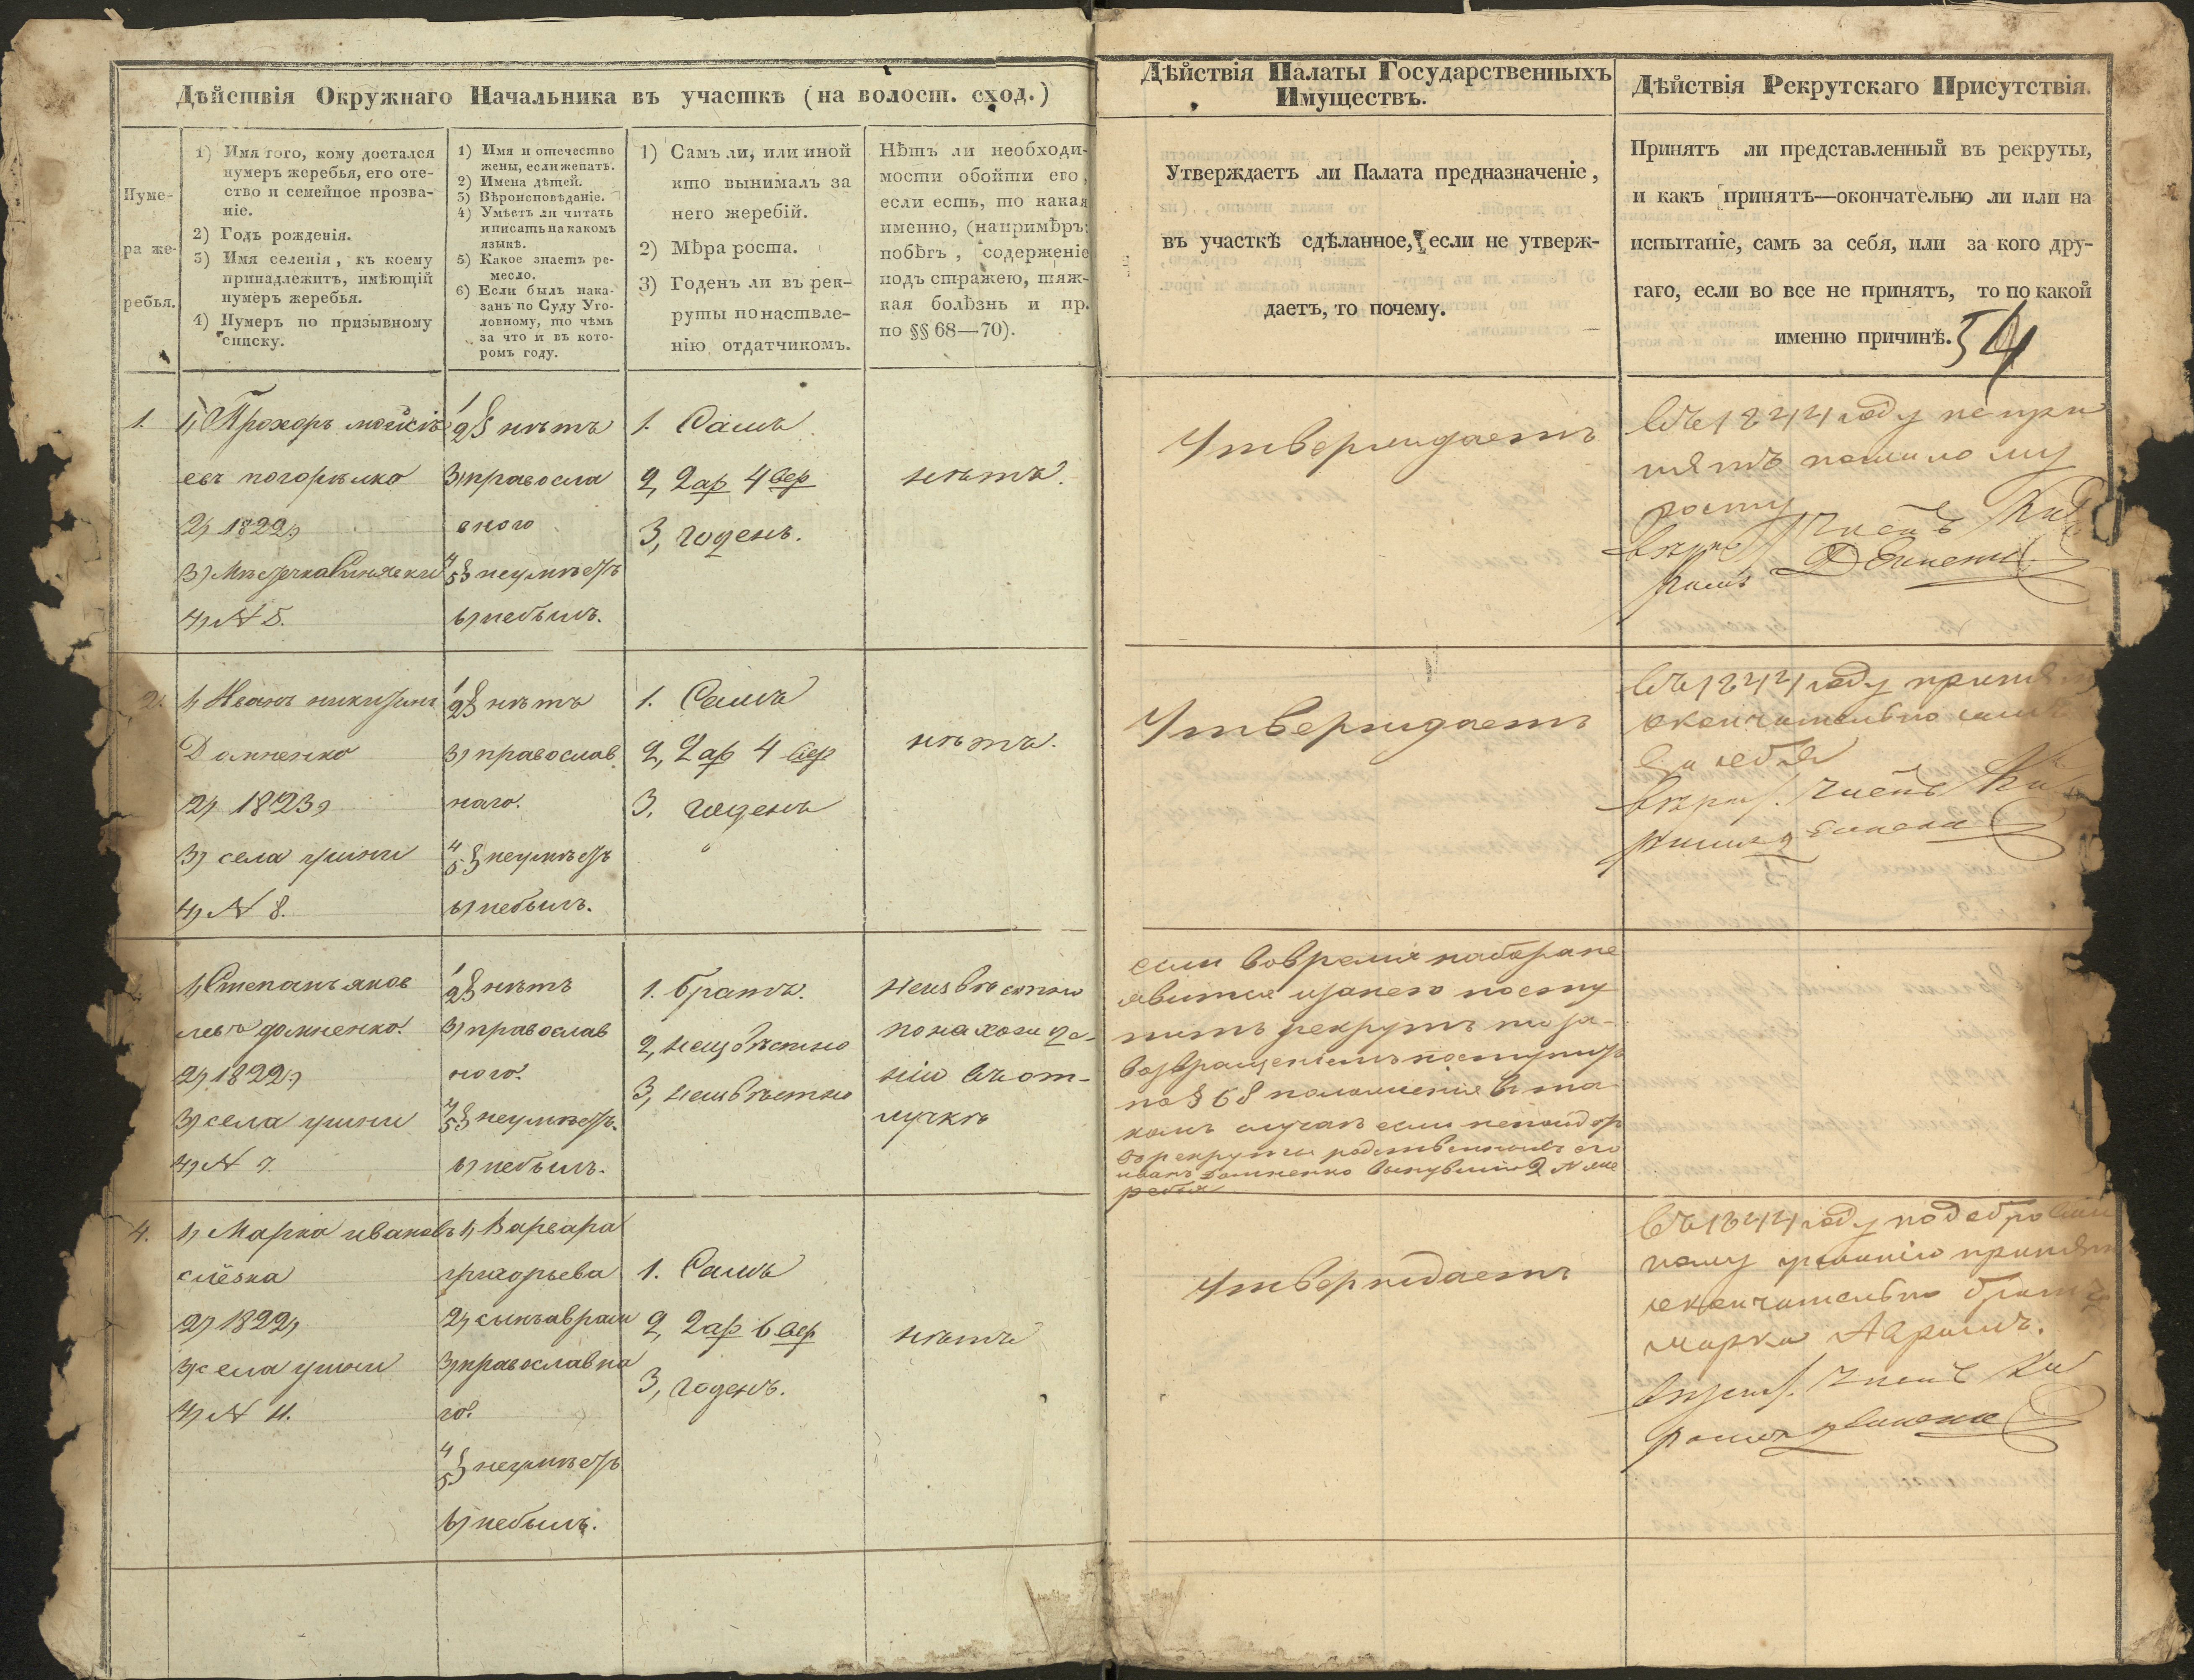 Дѣйствія Окружнаго Начальника въ участкѣ (на волост. сход.)
Нуме-
ра же-
ребья.
1) Имя того, кому достался
нумеръ жеребья, его оте-
ство и семейное прозва-
ніе.
2) Годъ рожденія.
3) Имя селенія, къ коему
принадлежитъ, имѣющій
нумеръ жеребья.
4) Нумеръ по призывному
списку.
1) Имя и отечество
жены, если женатъ.
2) Имена дѣтей.
3) Вѣроисповѣданіе.
4) Умѣетъ ли читать
и писать на какомъ
языкѣ.
5) Какое знаетъ ре-
месло.
6) Если былъ нака-
занъ по Суду Уго-
ловному, то чѣмъ
за что и въ кото-
ромъ году.
1) Самъ ли, или иной
кто вынималъ за
него жеребій.
2) Мѣра роста.
3) Годенъ ли въ рек-
руты по наствле-
нію отдатчикомъ.
Нѣтъ ли необходи-
мости обойти его,
если есть, то какая
именно, (напримѣръ:
побѣгъ, содержаніе
подъ стражею, тяж-
кая болѣзнь и пр.
по §§ 68—70).
Дѣйствія Палаты Государственныхъ
Имуществъ.
Утверждаетъ ли Палата предназначеніе,
въ участкѣ сдѣланное, если не утверж-
даетъ, то почему.
Дѣйствія Рекрутскаго Присутствія.
Принятъ ли представленный въ рекруты,
и какъ принятъ—окончательно ли или на
испытаніе, самъ за себя, или за кого дру-
гаго, если во все не принятъ, то по какой
именно причинѣ.
54
1.
1) Прохоръ
погорѣлко
2) 1822
3) Мѣстечка
4) N 5.
1
2} нѣтъ
3) правосла
вного
4
5} неумѣетъ
6) небылъ.
1. Самъ
2, 2 ар 4 вер
3, годенъ.
нѣтъ.
Утверждаетъ
Въ 1844 году непри
нятъ помалому
росту
2.
1) Иванъ никитинъ
Домненко
2) 1823
3) села ушни
4) N 8.
1
2} нѣтъ
3) православ
наго.
4
5} неумѣетъ
6) небылъ.
1. Самъ
2, 2 ар 4 вер
3. годенъ
нѣтъ.
Утверждаетъ
Въ 1844 году принятъ
окончательно самъ
за себя
1) Степанъ яков
левъ домненко.
2) 1822
3) села ушни
4) N 7.
1
2} нѣтъ
3) православ
ного.
4
5} неумѣетъ.
6) небылъ.
1. братъ.
2, неизвѣстно
3, неизвѣстно
Неизвѣстно
понахожде-
нію въ от-
лучкѣ
если вовремя наборане
явится изанего посту
питъ рекрутъ тоза-
возвращеніемъ поступитъ
по § 68 положенія въ та
комъ случаѣ если непойдетъ
въ рекруты родственникъ его
иванъ Домненко вынувшій 2 N же
ребья
4.
1) Марко ивановъ
слёзка
2) 1822
3) села ушни
4) N 11.
1) Варвара
григорьева
2) сынъ аврам
3) православна
го.
4
5} неумѣетъ
6) небылъ.
1. Самъ
2, 2 ар 6 вер
3, годенъ.
нѣтъ
Утверждаетъ
Въ 1844 году подобровол
ному принятъ
окончательно братъ
марка Абрамъ.